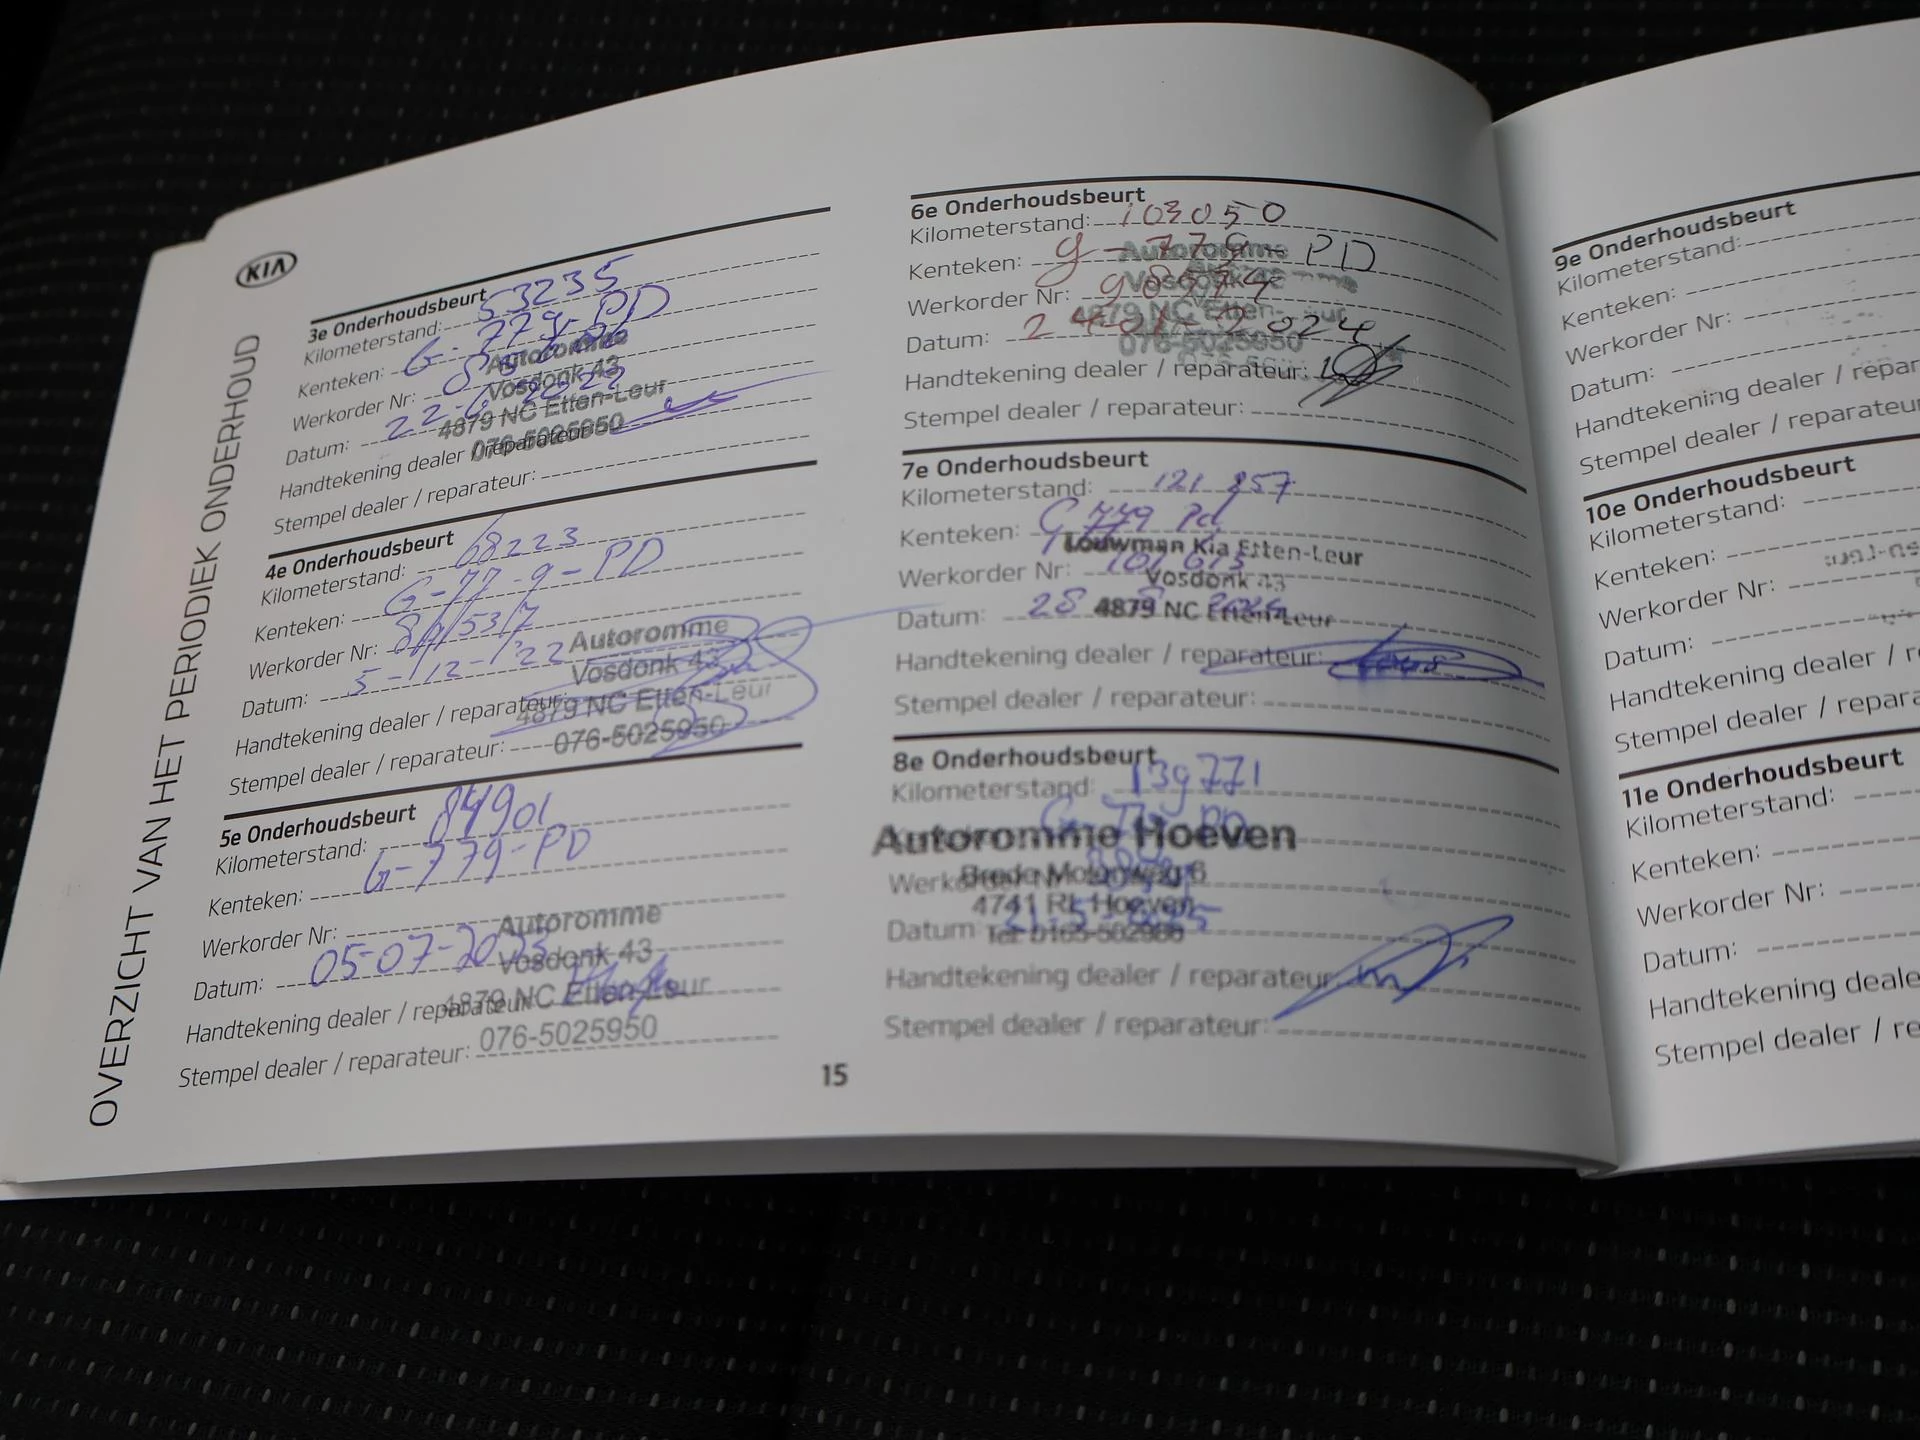 KIA
OVERZICHT VAN HET PERIODIEK ONDERHOUD
3e Onderhoudsbeurt
Kilometerstand: 53235
Kenteken: G-779-PD
Werkorder Nr:
Datum: 22-6-2022
Handtekening dealer / reparateur:
Stempel dealer / reparateur:
Autoromme
Vosdonk 43
4879 NC Etten-Leur
076-5025950
4e Onderhoudsbeurt
Kilometerstand: 68223
Kenteken: G-77 9-PD
Werkorder Nr:
Datum: 5-12-'22
Handtekening dealer / reparateur:
Stempel dealer / reparateur:
Autoromme
Vosdonk 43
4879 NC Etten-Leur
076-5025950
5e Onderhoudsbeurt
Kilometerstand: 84901
Kenteken: G-779-PD
Werkorder Nr:
Datum: 05-07-2023
Handtekening dealer / reparateur:
Stempel dealer / reparateur:
Autoromme
Vosdonk 43
4879 NC Etten-Leur
076-5025950
6e Onderhoudsbeurt
Kilometerstand: 103050
Kenteken: g-779-PD
Werkorder Nr:
Datum: 24-01-2024
Handtekening dealer / reparateur:
Stempel dealer / reparateur:
Autoromme
Vosdonk
4879 NC Etten-
076-5025950
7e Onderhoudsbeurt
Kilometerstand: 121 857
Kenteken: G 779 Pd
Werkorder Nr: 101 613
Datum: 28 8 2024
Handtekening dealer / reparateur:
Stempel dealer / reparateur:
Louwman Kia Etten-Leur
Vosdonk 43
4879 NC Etten-Leur
8e Onderhoudsbeurt
Kilometerstand: 139771
Kenteken: G-779-PD
Werkorder Nr:
Datum: 21-5-2025
Handtekening dealer / reparateur:
Stempel dealer / reparateur:
Autoromme Hoeven
Bredo Molenweg 6
4741 RL Hoeven
Tel: 0165-502986
15
9e Onderhoudsbeurt
Kilometerstand:
Kenteken:
Werkorder Nr:
Datum:
Handtekening dealer / repar
Stempel dealer / reparateu
10e Onderhoudsbeurt
Kilometerstand:
Kenteken:
Werkorder Nr:
Datum:
Handtekening dealer / r
Stempel dealer / repara
11e Onderhoudsbeurt
Kilometerstand:
Kenteken:
Werkorder Nr:
Datum:
Handtekening deale
Stempel dealer / re